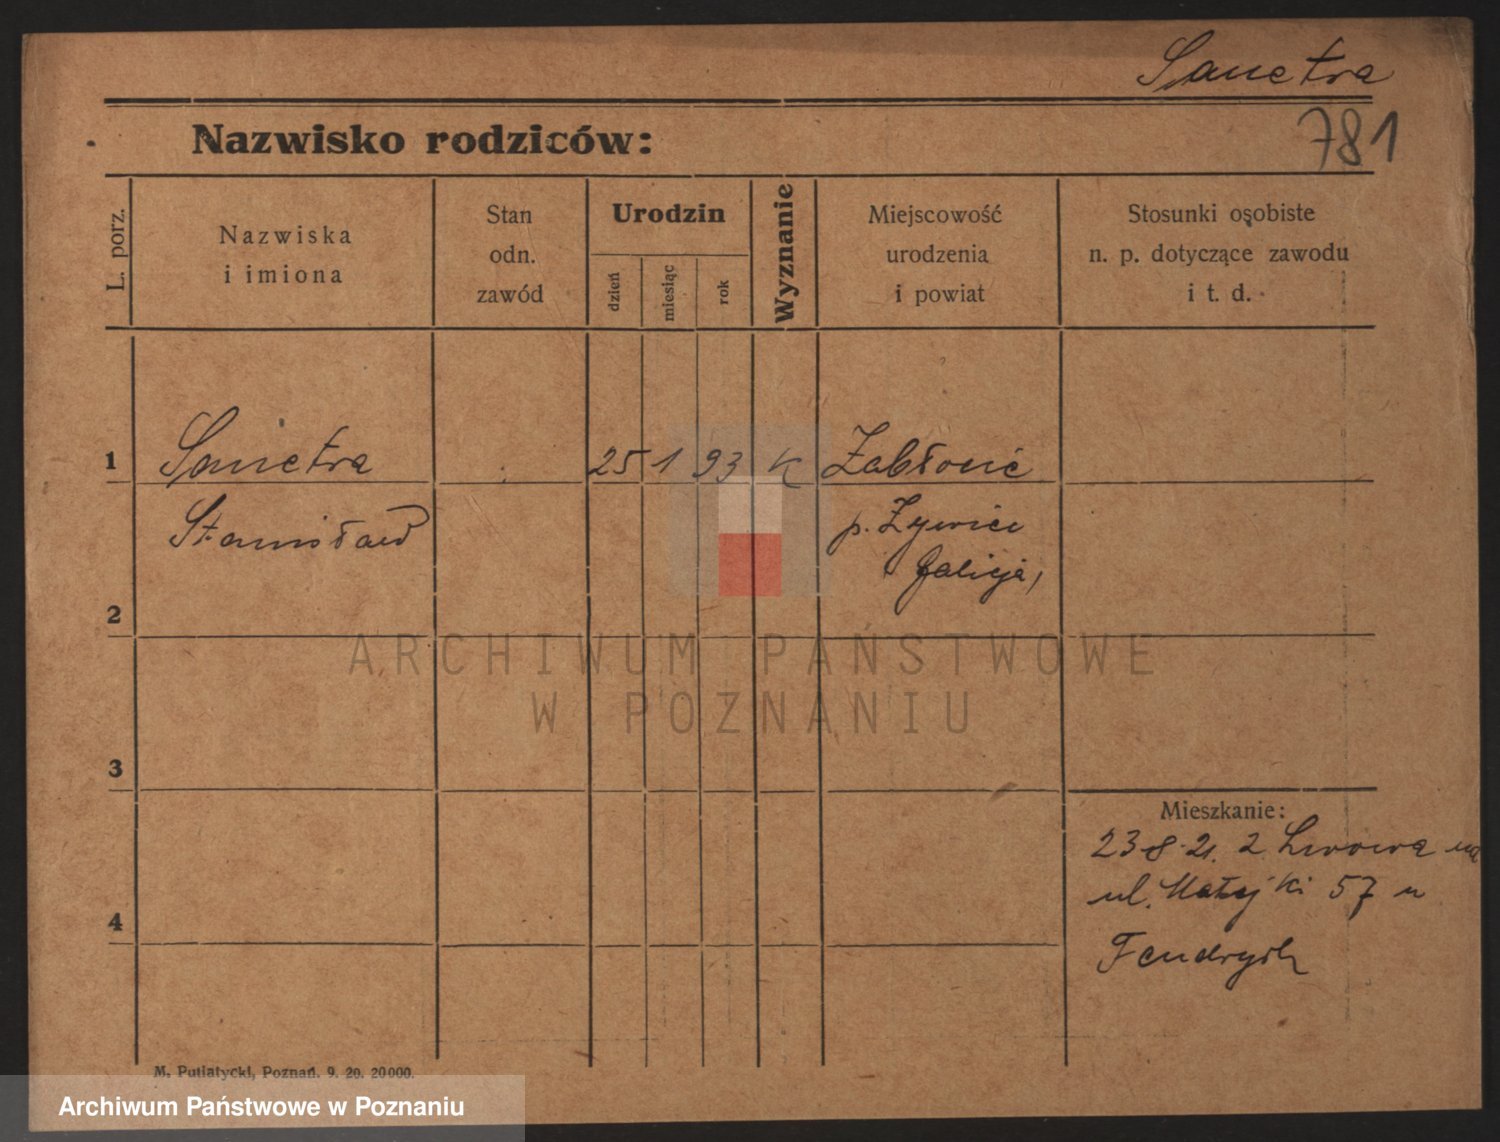 Sanetra
781
Nazwisko rodziców:
L. porz.
Nazwiska
i imiona
Stan
odn.
zawód
Urodzin
dzień
miesiąc
rok
Wyznanie
Miejscowość
urodzenia
i powiat
Stosunki osobiste
n. p. dotyczące zawodu
i t. d.
1 Sanetra 25 1 93 K Zabłocie
Stanisław p. Żywiec
Galicja,
2
3
4
Mieszkanie:
23 8 21. z Lwowa na
ul. Matejki 57 u
M. Putiatycki, Poznań. 9. 20. 20000.
ARCHIWUM PAŃSTWOWE
W POZNANIU
Archiwum Państwowe w Poznaniu